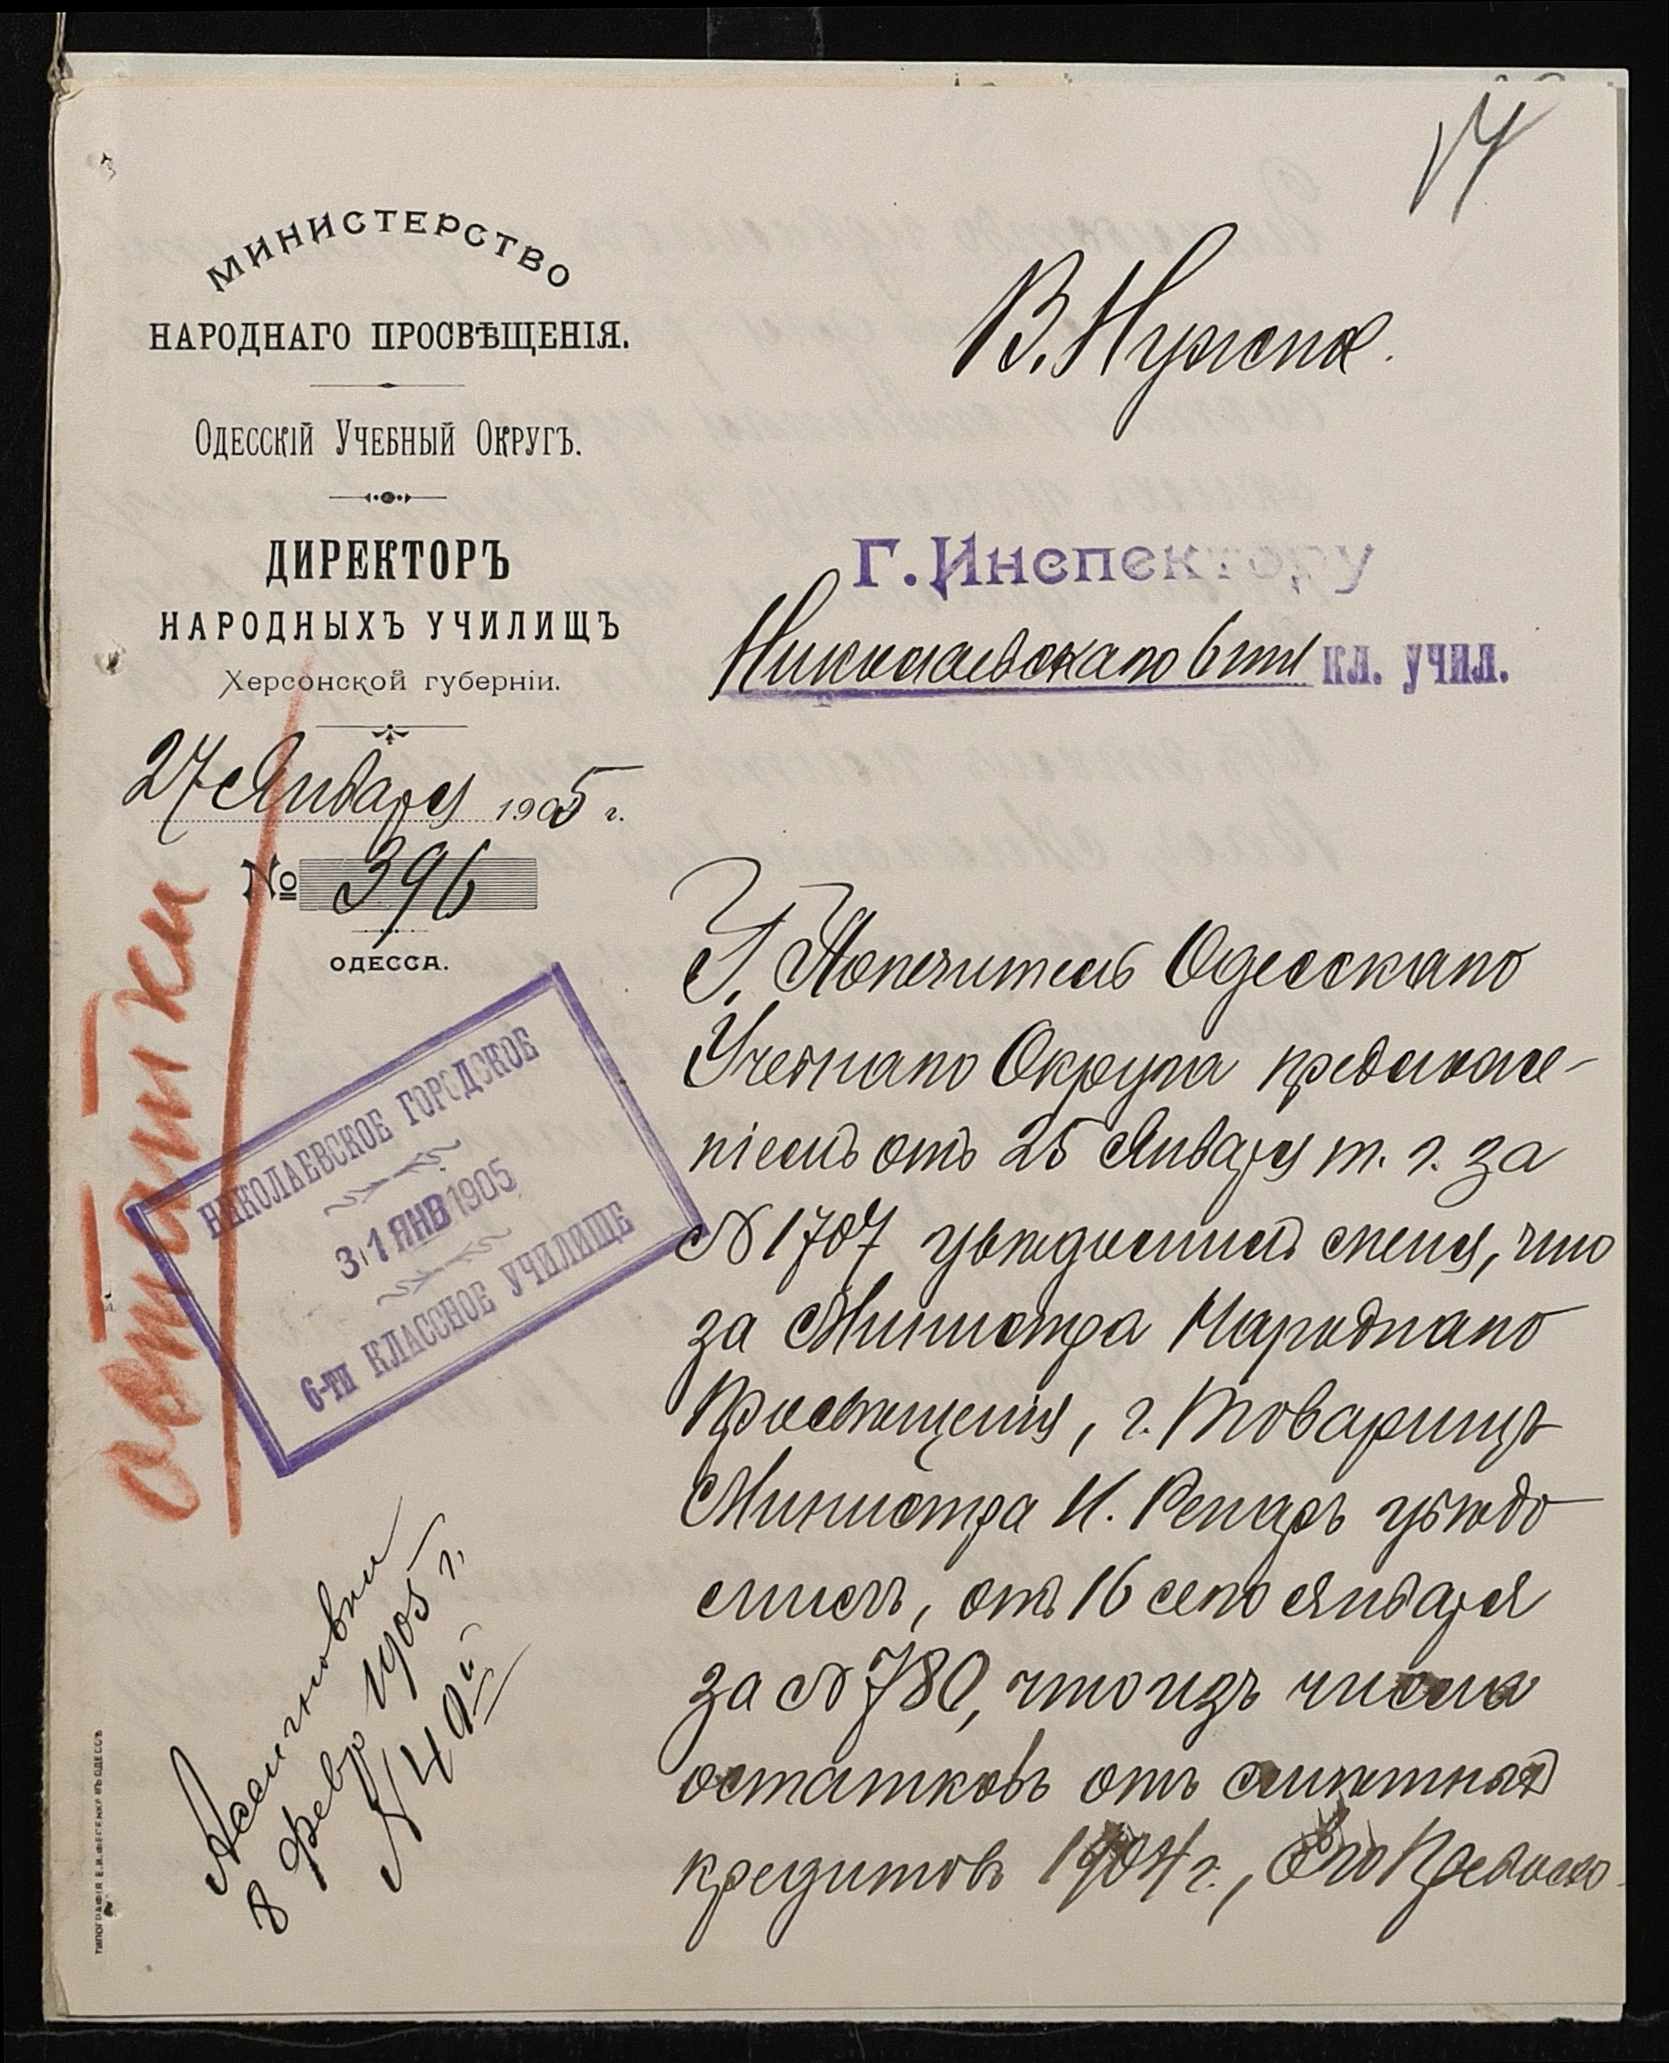 17
МИНИСТЕРСТВО
НАРОДНАГО ПРОСВѢЩЕНІЯ.
ОДЕССКІЙ УЧЕБНЫЙ ОКРУГЪ.
ДИРЕКТОРЪ
НАРОДНЫХЪ УЧИЛИЩЪ
Херсонской губерніи.
27 Января 1905 г.
№ 396
ОДЕССА.
В. Нужное.
Г. Инспектору
Николаевскаго 6 ти кл. учил.
остатки
НИКОЛАЕВСКОЕ ГОРОДСКОЕ
31 ЯНВ 1905
6-ТИ КЛАССНОЕ УЧИЛИЩЕ
Г. Попечитель Одесскаго
Учебнаго Округа предложе-
ніемъ отъ 25 Января т. г. за
№ 1707 увѣдомилъ меня, что
за Министра Народнаго
Просвѣщенія, г. Товарищъ
Министра И. Ренаръ увѣдо
милъ, отъ 16 сего января
за № 780, что изъ числа
остатковъ отъ смѣтныхъ
кредитовъ 1904 г., Его Превосхо
Ассигновки
8 февр 1905 г.
№ 40й
ТИПОГРАФІЯ Е. И. ФЕСЕНКО ВЪ ОДЕССѢ